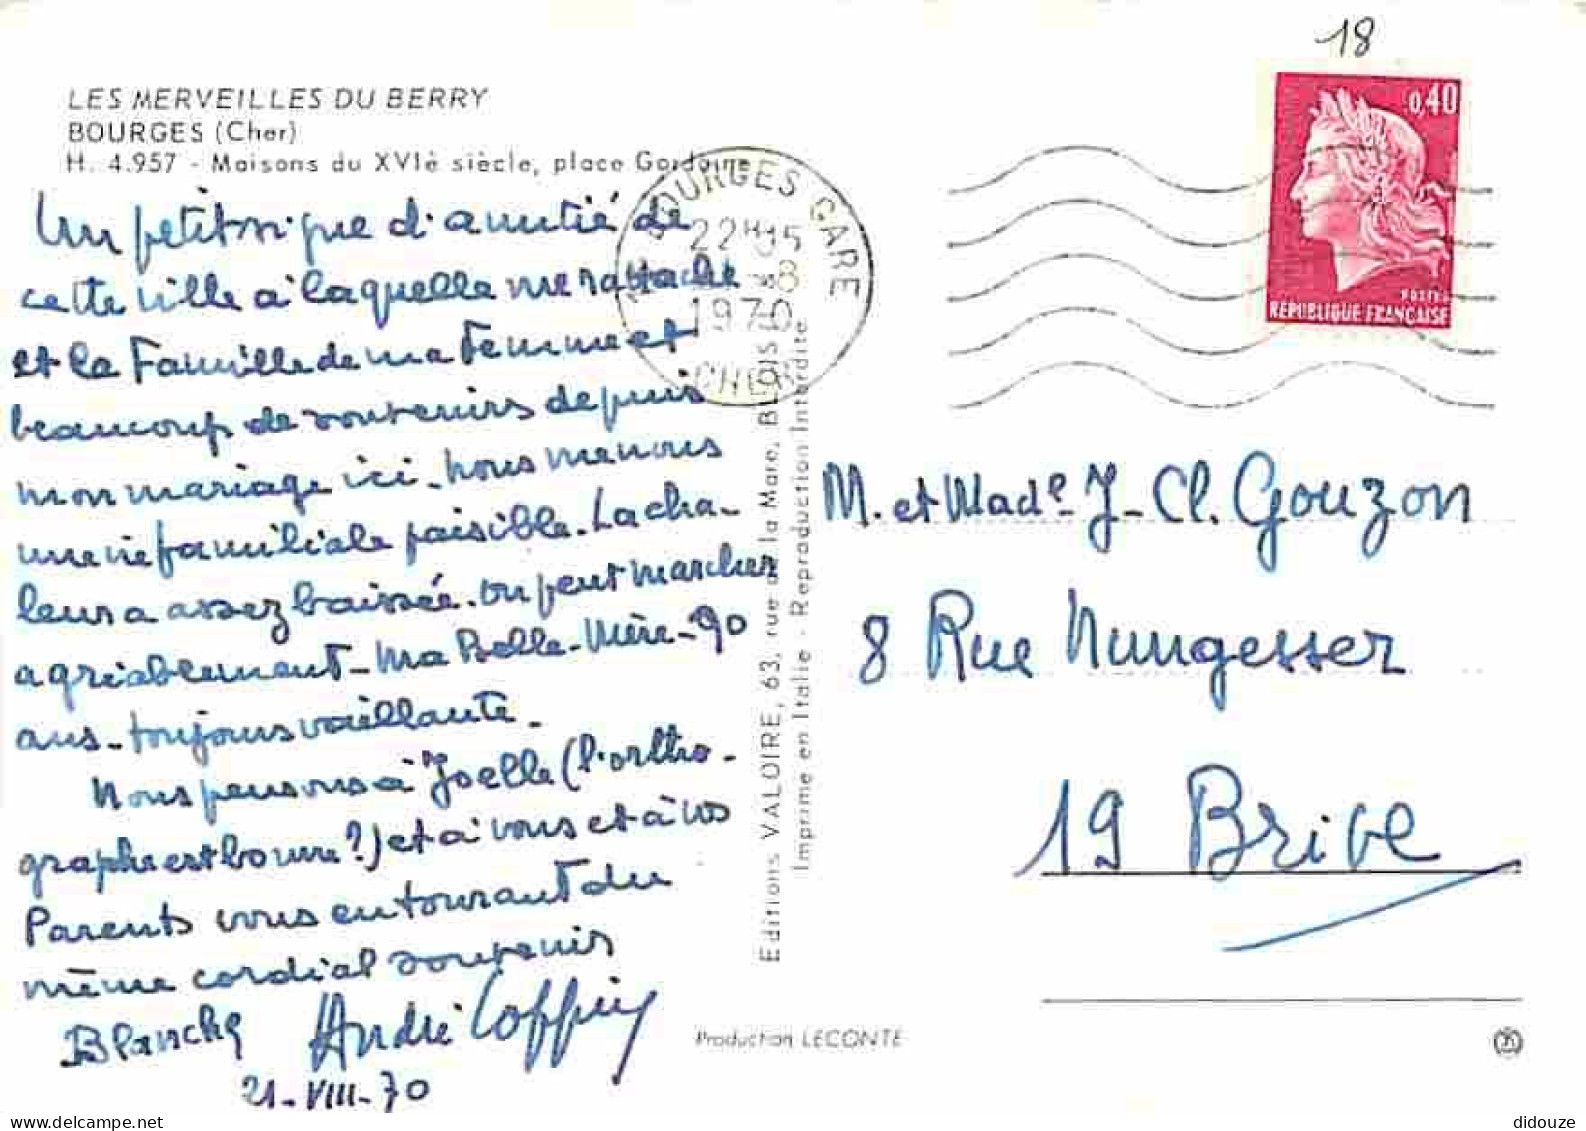 18
LES MERVEILLES DU BERRY
BOURGES (Cher)
H. 4.957 - Maisons du XVIè siècle, place Gordaine
0,40
POSTES
REPUBLIQUE FRANÇAISE
BOURGES GARE
22H15
8
1970
CHER
Un petit signe d'amitié de
cette ville à laquelle me rattache
et la Famille de ma Femme et
beaucoup de souvenirs depuis
mon mariage ici. Nous menons
une vie familiale paisible. La cha-
leur a assez baissée. On peut marcher
agréablement - Ma Belle-Mère - 90
ans - toujours vaillante -
Nous pensons à Joelle (l'ortho-
graphe est bonne ?) et à vous et à vos
Parents vous entourant du
même cordial souvenir
Blanche André Coffin
21-VIII-70
M. et Made J-Cl. Gouzon
8 Rue Nungesser
19 Brive
Editions VALOIRE, 63, rue de la Mare, BLOIS
Imprimé en Italie - Reproduction Interdite
Production LECONTE
didouze